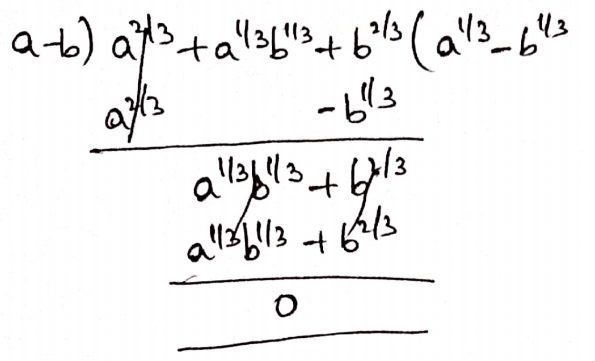 a-b) a^{2/3} + a^{1/3}b^{1/3} + b^{2/3} ( a^{1/3} - b^{1/3}
a^{2/3} - b^{1/3}
a^{1/3}b^{1/3} + b^{2/3}
a^{1/3}b^{1/3} + b^{2/3}
0